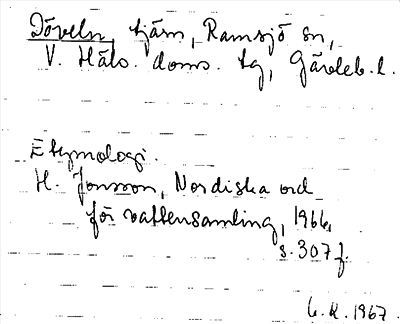 Döveln, tjärn, Ramsjö sn,
V. Häls. doms. tg, Gävleb. l.
Etymologi.
H. Jonsson, Nordiska ord
för vattensamling, 1966,
s. 307 f.
1967.